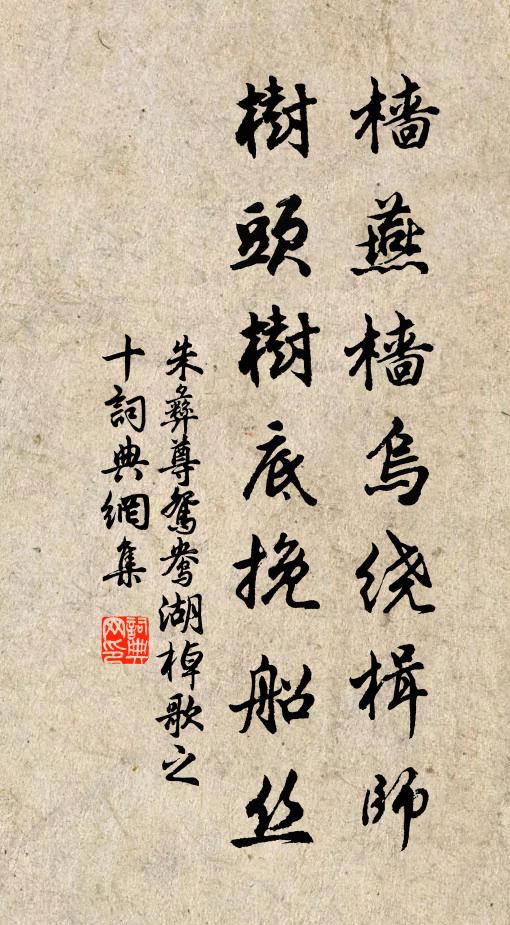 檣燕檣烏绕楫師
樹頭樹底挽船丝
朱彝尊鴛鴦湖棹歌之
十詞典網集
詞典网印